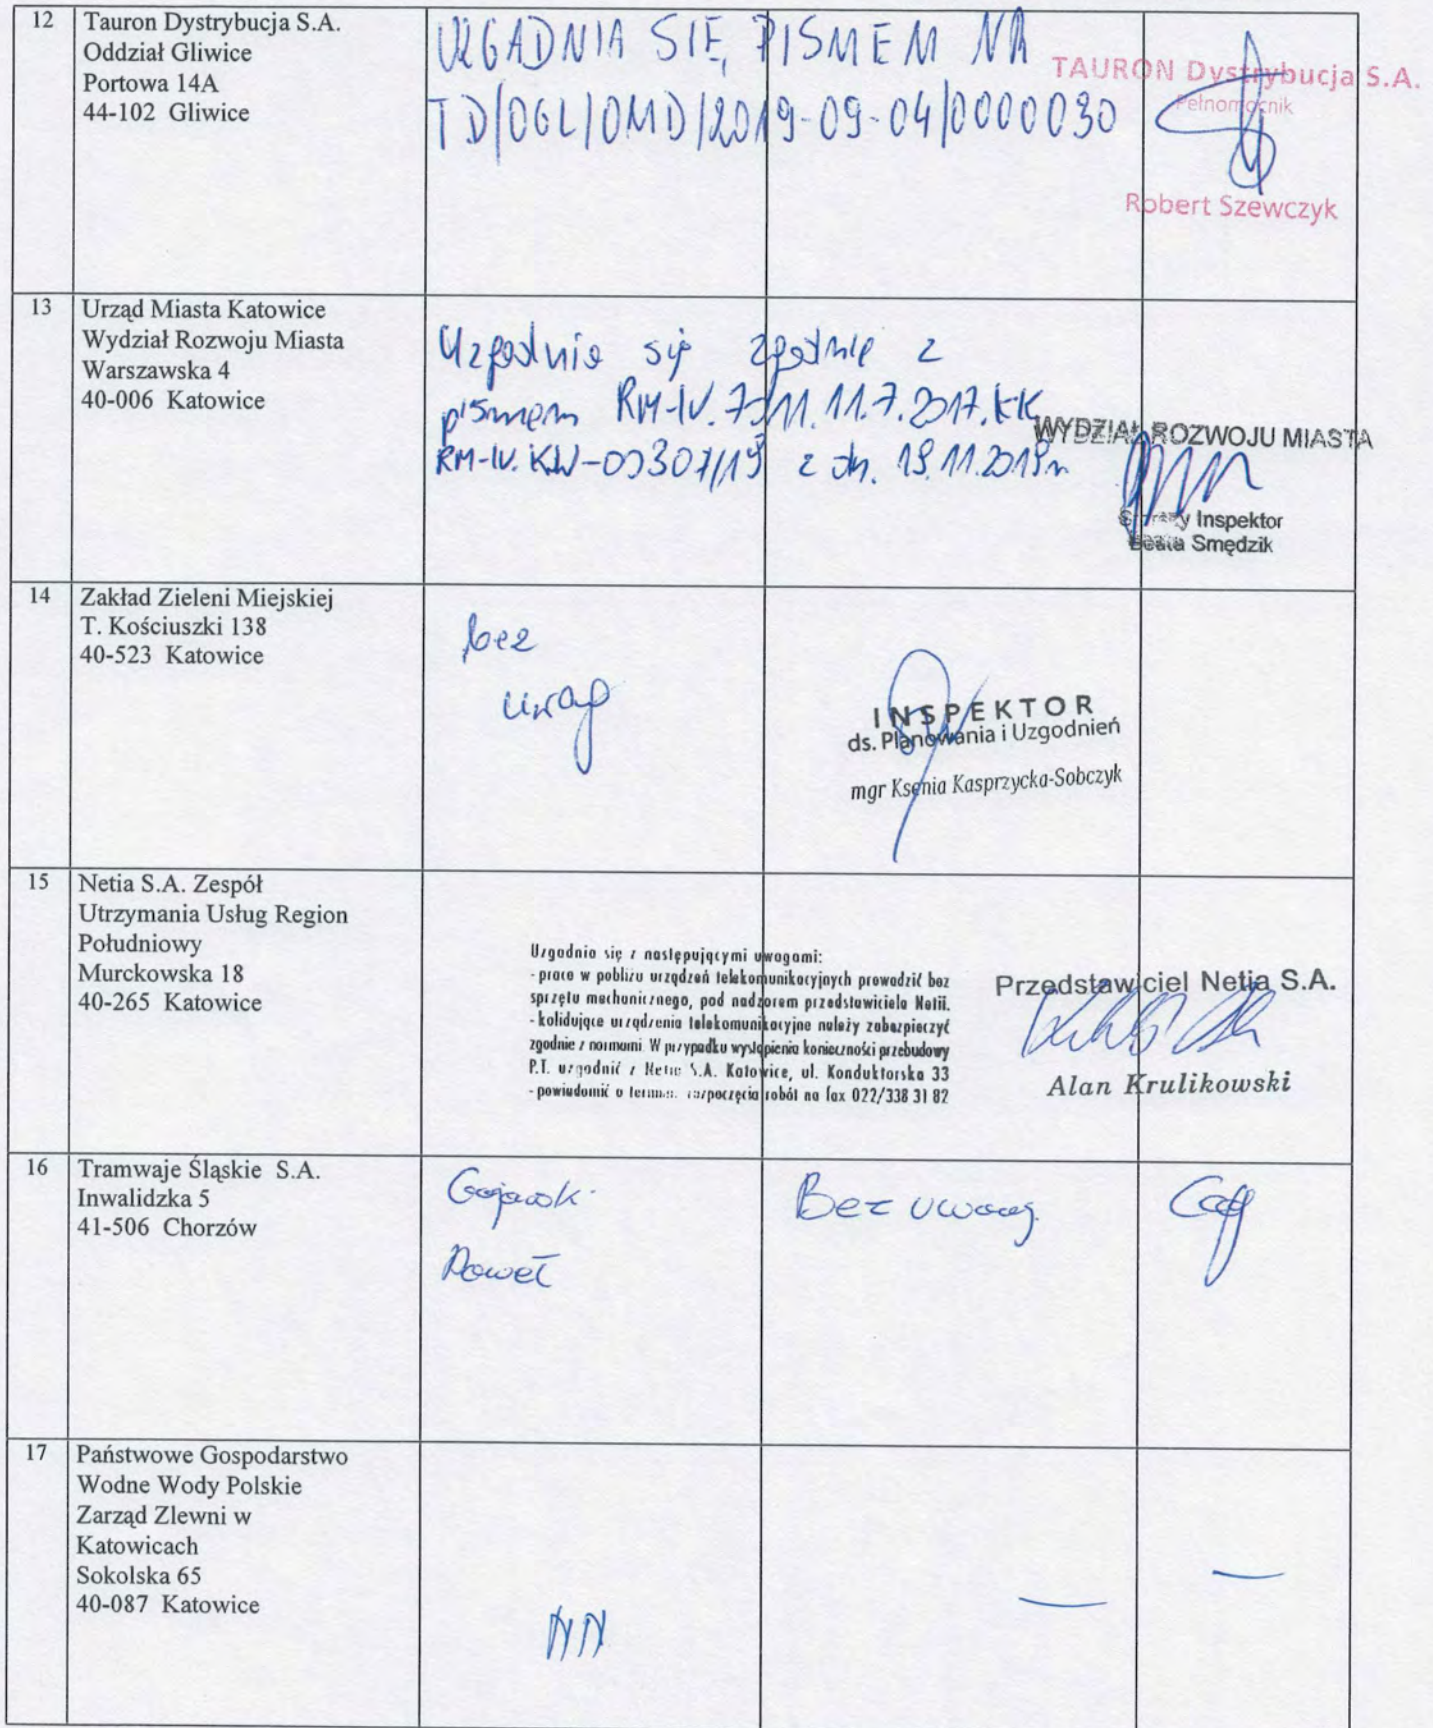 12
Tauron Dystrybucja S.A.
Oddział Gliwice
Portowa 14A
44-102 Gliwice
UZGADNIA SIĘ PISMEM NR
TD/OGL/OMD/2019-09-04/0000030
TAURON Dystrybucja S.A.
Pełnomocnik
Robert Szewczyk
13
Urząd Miasta Katowice
Wydział Rozwoju Miasta
Warszawska 4
40-006 Katowice
Uzgodnia się zgodnie z
pismem RM-IV.7011.11.7.2017.KK
RM-IV.KW-00307/19 z dn. 19.11.2019r
WYDZIAŁ ROZWOJU MIASTA
Starszy Inspektor
Beata Smędzik
14
Zakład Zieleni Miejskiej
T. Kościuszki 138
40-523 Katowice
bez
uwag
INSPEKTOR
ds. Planowania i Uzgodnień
mgr Ksenia Kasprzycka-Sobczyk
15
Netia S.A. Zespół
Utrzymania Usług Region
Południowy
Murckowska 18
40-265 Katowice
Uzgodnia się z następującymi uwagami:
- prace w pobliżu urządzeń telekomunikacyjnych prowadzić bez
sprzętu mechanicznego, pod nadzorem przedstawiciela Netii.
- kolidujące urządzenia telekomunikacyjne należy zabezpieczyć
zgodnie z normami. W przypadku wystąpienia konieczności przebudowy
P.T. uzgodnić z Netia S.A. Katowice, ul. Konduktorska 33
- powiadomić o terminie rozpoczęcia robót na fax 022/338 31 82
Przedstawiciel Netia S.A.
Alan Krulikowski
16
Tramwaje Śląskie S.A.
Inwalidzka 5
41-506 Chorzów
Paweł
Bez uwag.
17
Państwowe Gospodarstwo
Wodne Wody Polskie
Zarząd Zlewni w
Katowicach
Sokolska 65
40-087 Katowice
NN